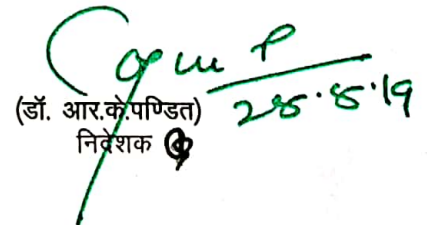 28.8.19
(डॉ. आर.के.पण्डित)
निदेशक